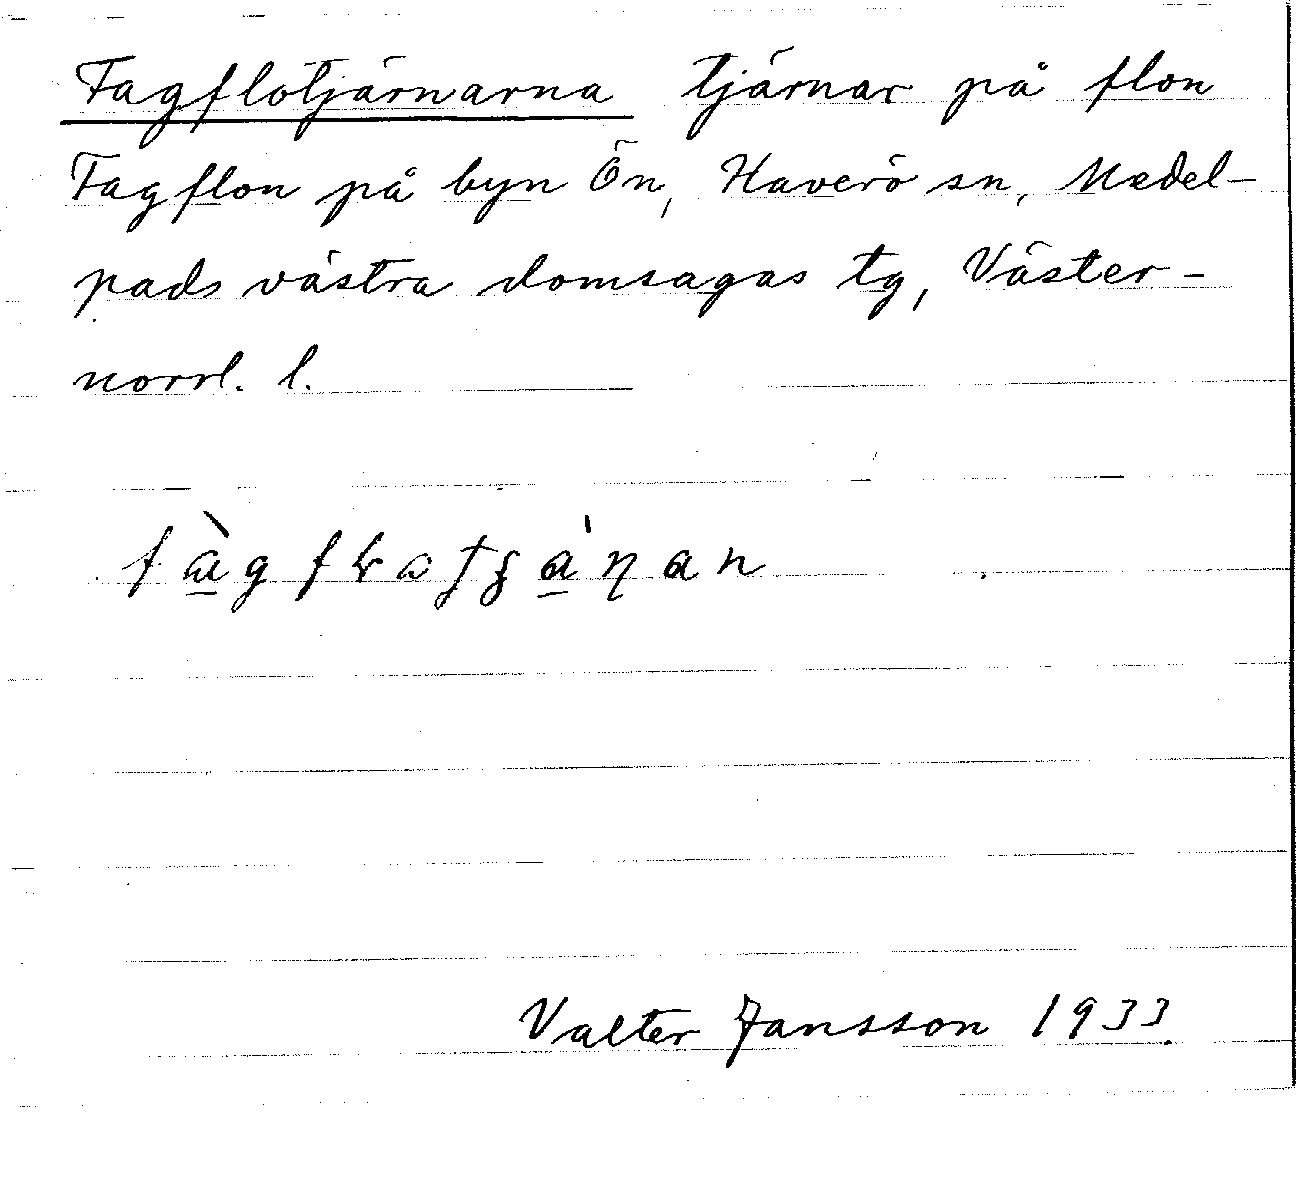 Fagflotjärnarna tjärnar på flon
Fagflon på byn Ön, Haverö sn, Medel-
pads västra domsagas tg, Väster-
norrl. l.
Valter Jansson 1933.